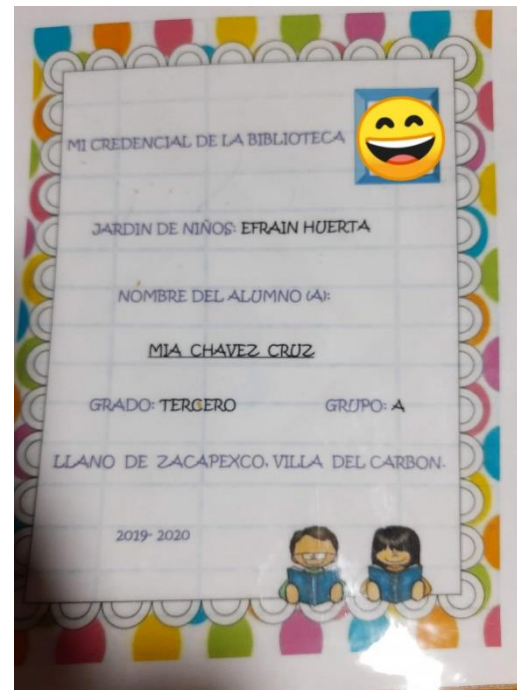 MI CREDENCIAL DE LA BIBLIOTECA
JARDIN DE NIÑOS: EFRAIN HUERTA
NOMBRE DEL ALUMNO (A):
MIA CHAVEZ CRUZ
GRADO: TERCERO GRUPO: A
LLANO DE ZACAPEXCO, VILLA DEL CARBON.
2019- 2020